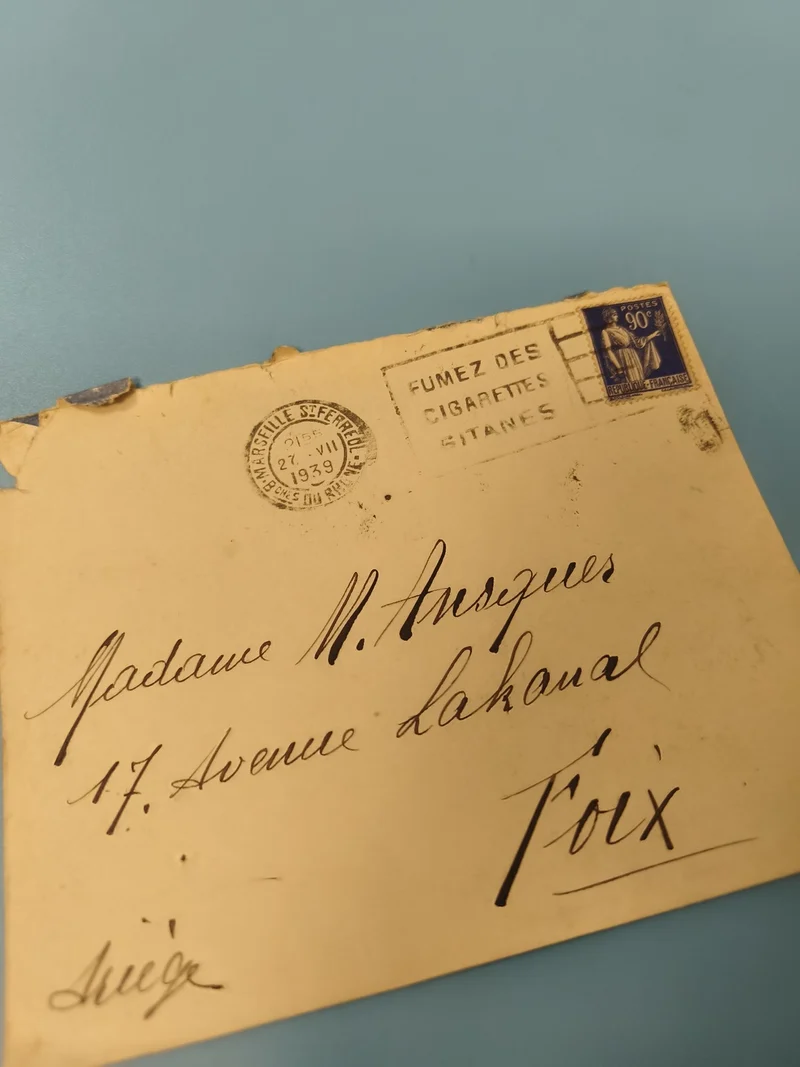 POSTES
90c
REPUBLIQUE FRANÇAISE
FUMEZ DES
CIGARETTES
GITANES
MARSEILLE St FERREOL
27 - VII
1939
Bches DU RHONE
Madame M. Ansques
17. Avenue Lakanal
Foix
Ariège